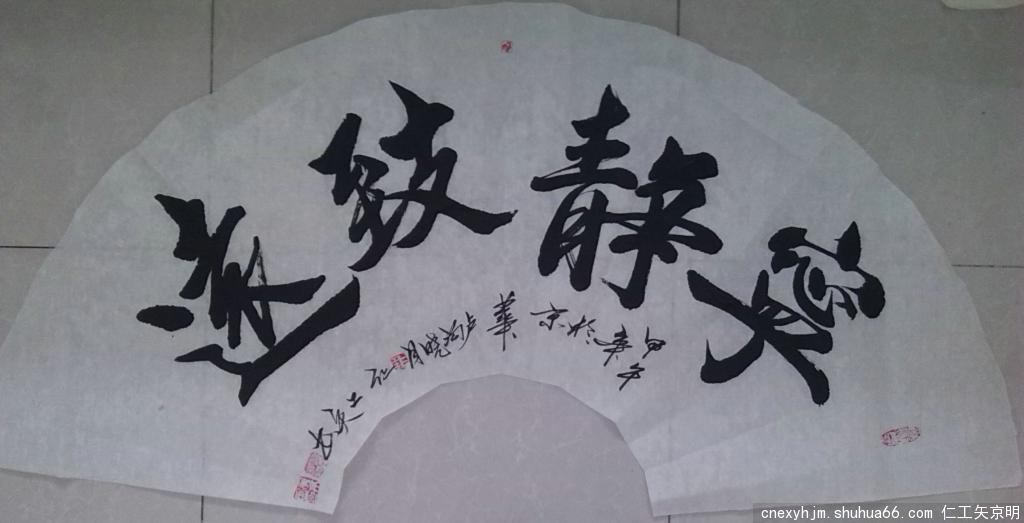 寧静致遠
甲午春於京華卢沟晓月仁工矢
cnexyhjm.shuhua66.com 仁工矢京明